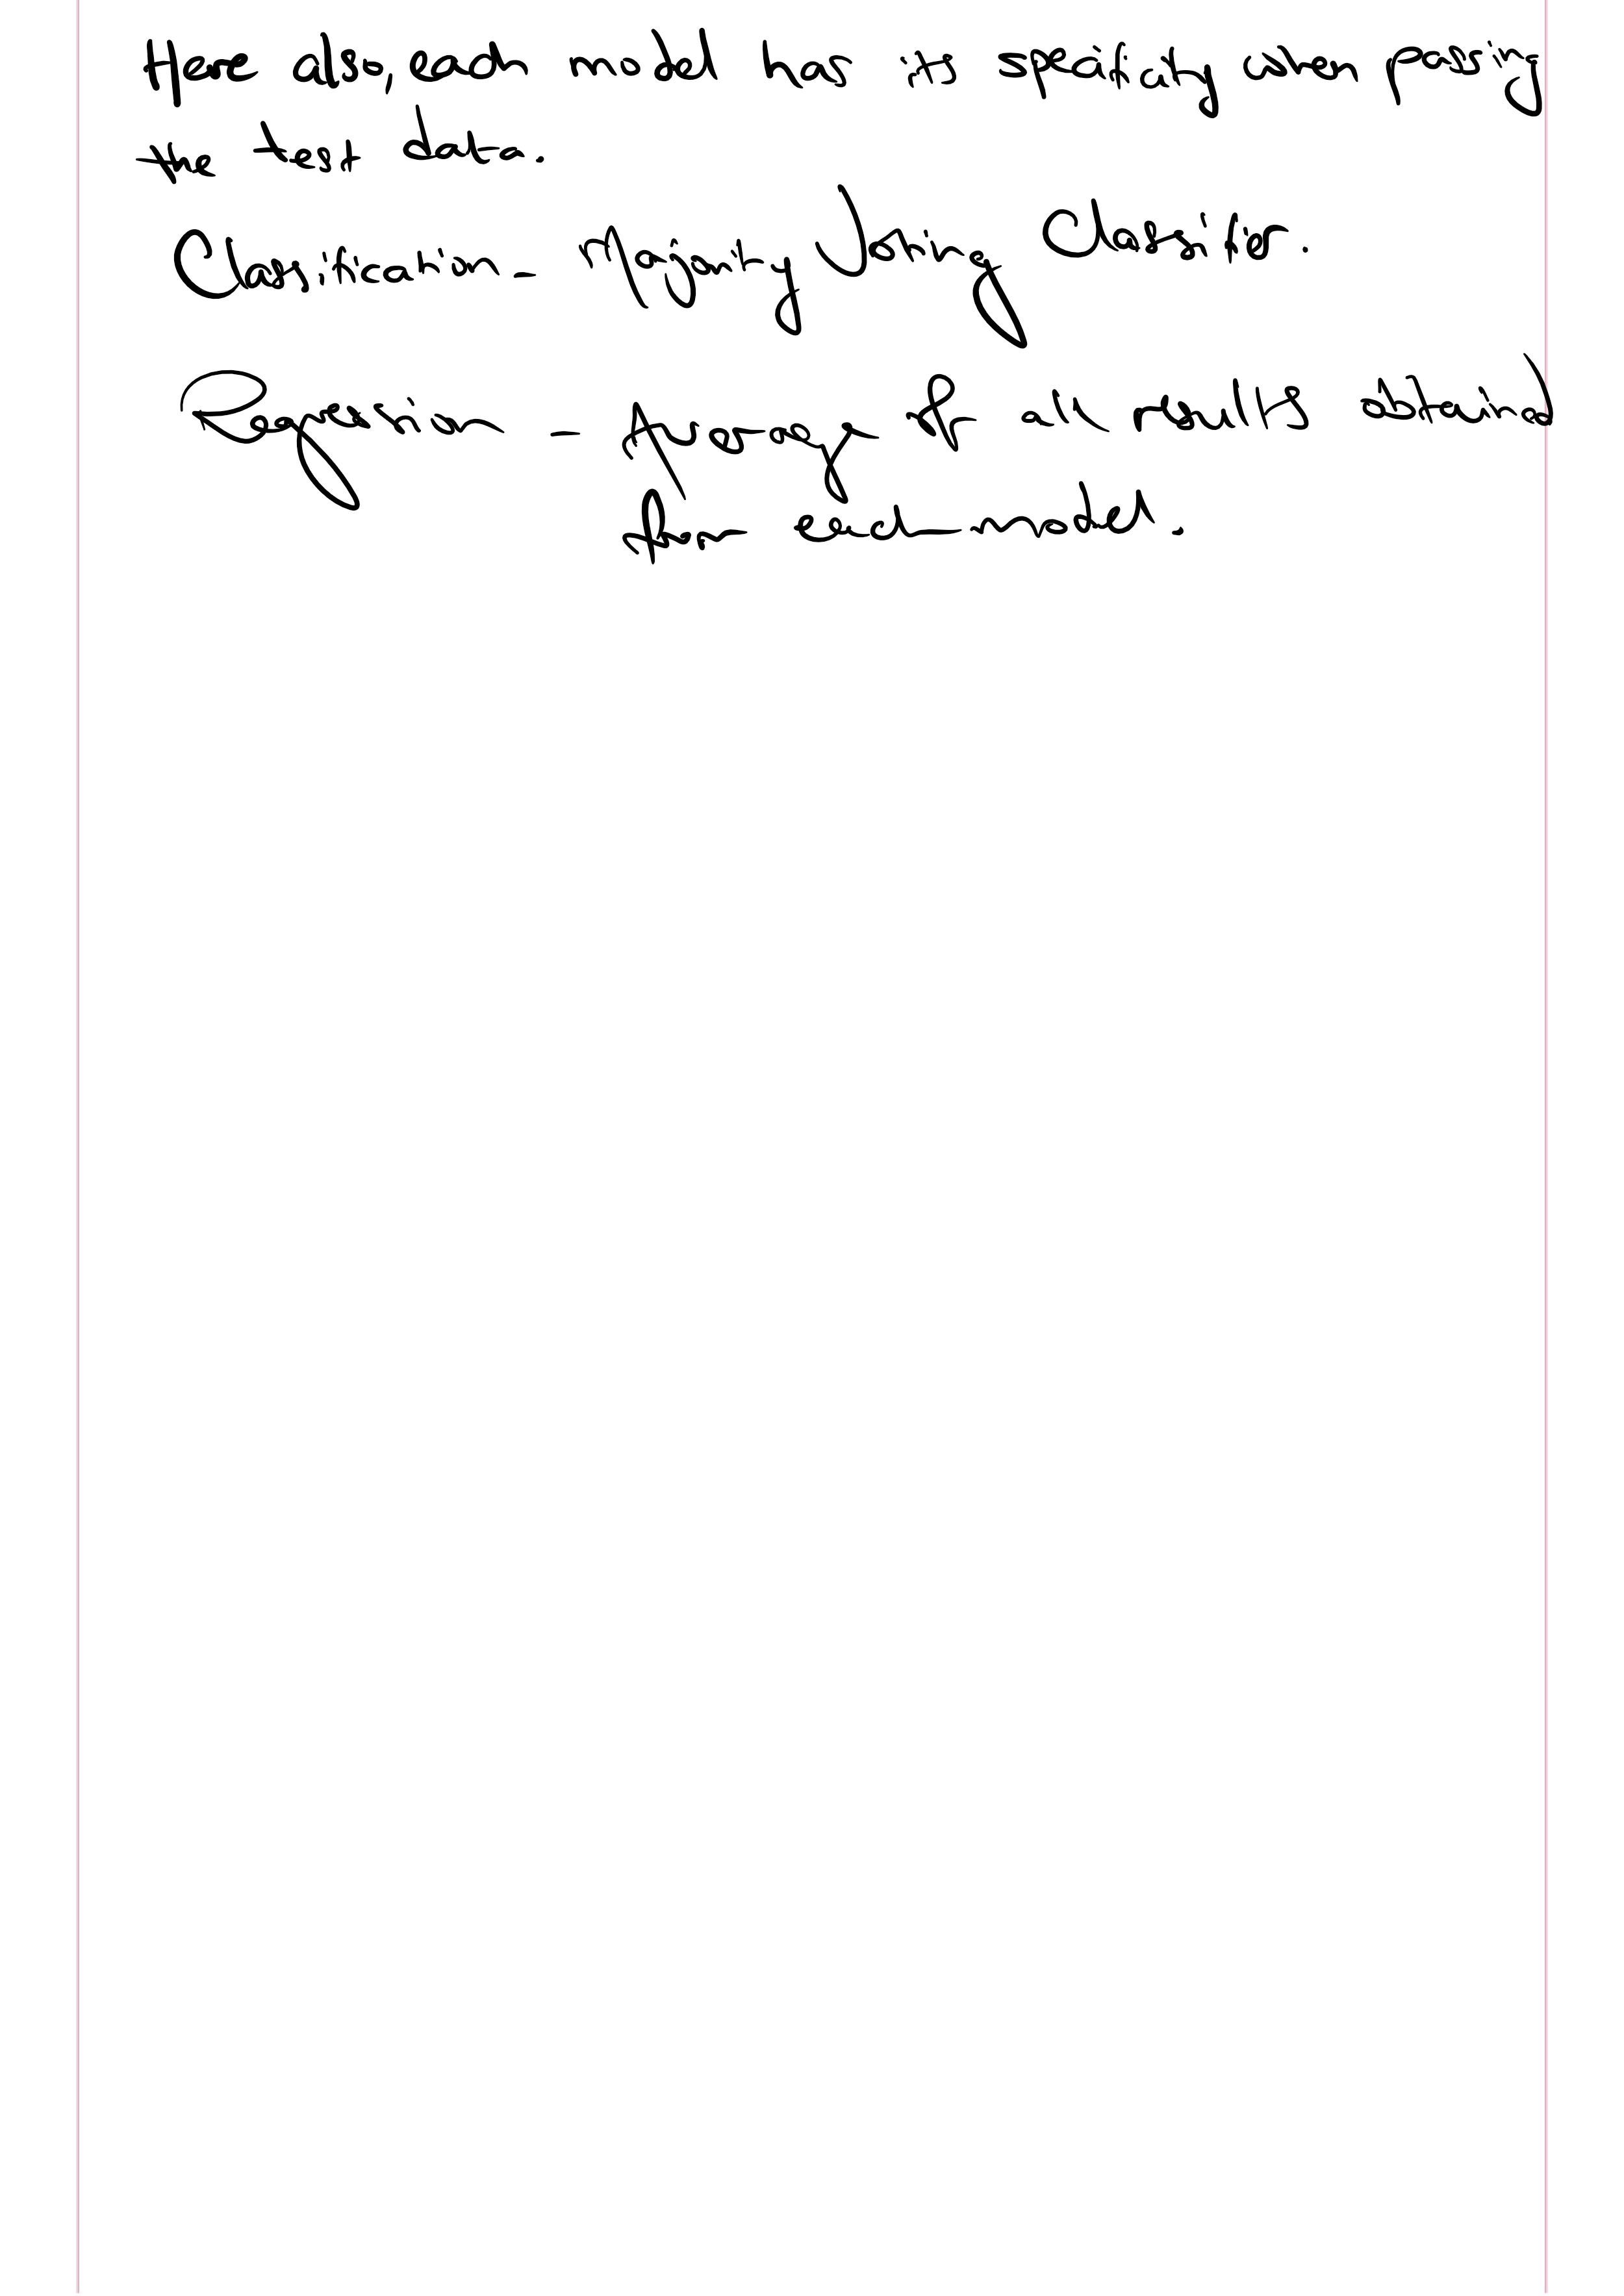 Here also, each model has its specificity when passing
the test data.
Classification - Majority Voting Classifier.
Regression - Average of all results obtained
from each model.